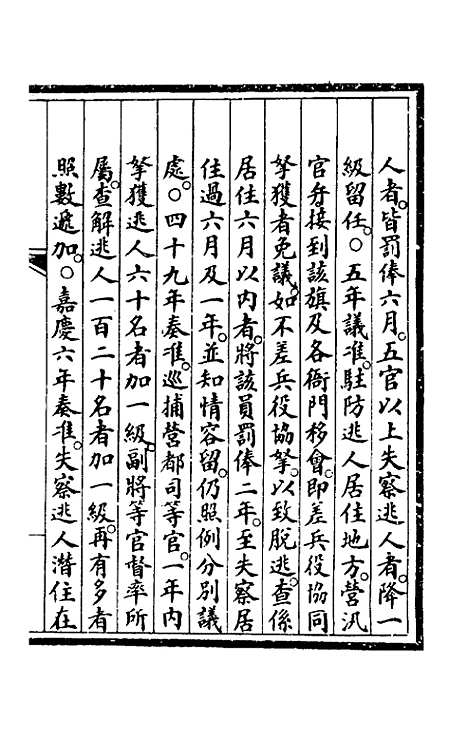 人者。皆罰俸六月。五官以上失察逃人者。降一
級留任。○五年議准。駐防逃人居住地方。營汛
官弁接到該旗及各衙門移會。即差兵役協同
拏獲者免議。如不差兵役協拏。以致脫逃。查係
居住六月以內者。將該員罰俸二年。至失察居
住過六月及一年。並知情容留。仍照例分別議
處。○四十九年奏准。巡捕營都司等官。一年內
拏獲逃人六十名者加一級。副將等官督率所
屬。查解逃人一百二十名者加一級。再有多者
照數遞加。○嘉慶六年奏准。失察逃人潛住在